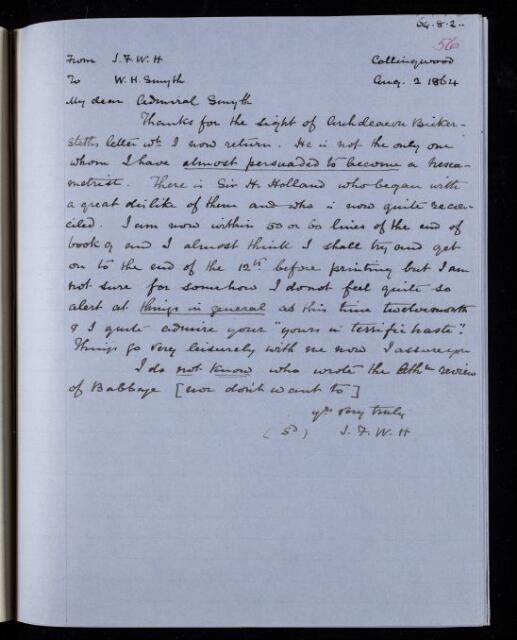 64.8.2
56
From J. F. W. H Collingwood
To W. H. Smyth Aug. 2 1864
My dear Admiral Smyth
Thanks for the sight of Archdeacon Bicker-
steths letter wh I now return. He is not the only one
whom I have almost persuaded to become a hexa-
metrist. There is Sir H. Holland who began with
a great dislike of them and who is now quite recon-
ciled. I am now within 50 or 60 lines of the end of
book 9 and I almost think I shall try and get
on to the end of the 12th before printing but I am
not sure for somehow I do not feel quite so
alert at things in general as this time twelvemonth
& I quite admire your "yours in terrific haste".
Things go very leisurely with me now I assure you
I do not know who wrote the Athm review
of Babbage [nor don't want to]
yrs very truly
(sd) J. F. W. H